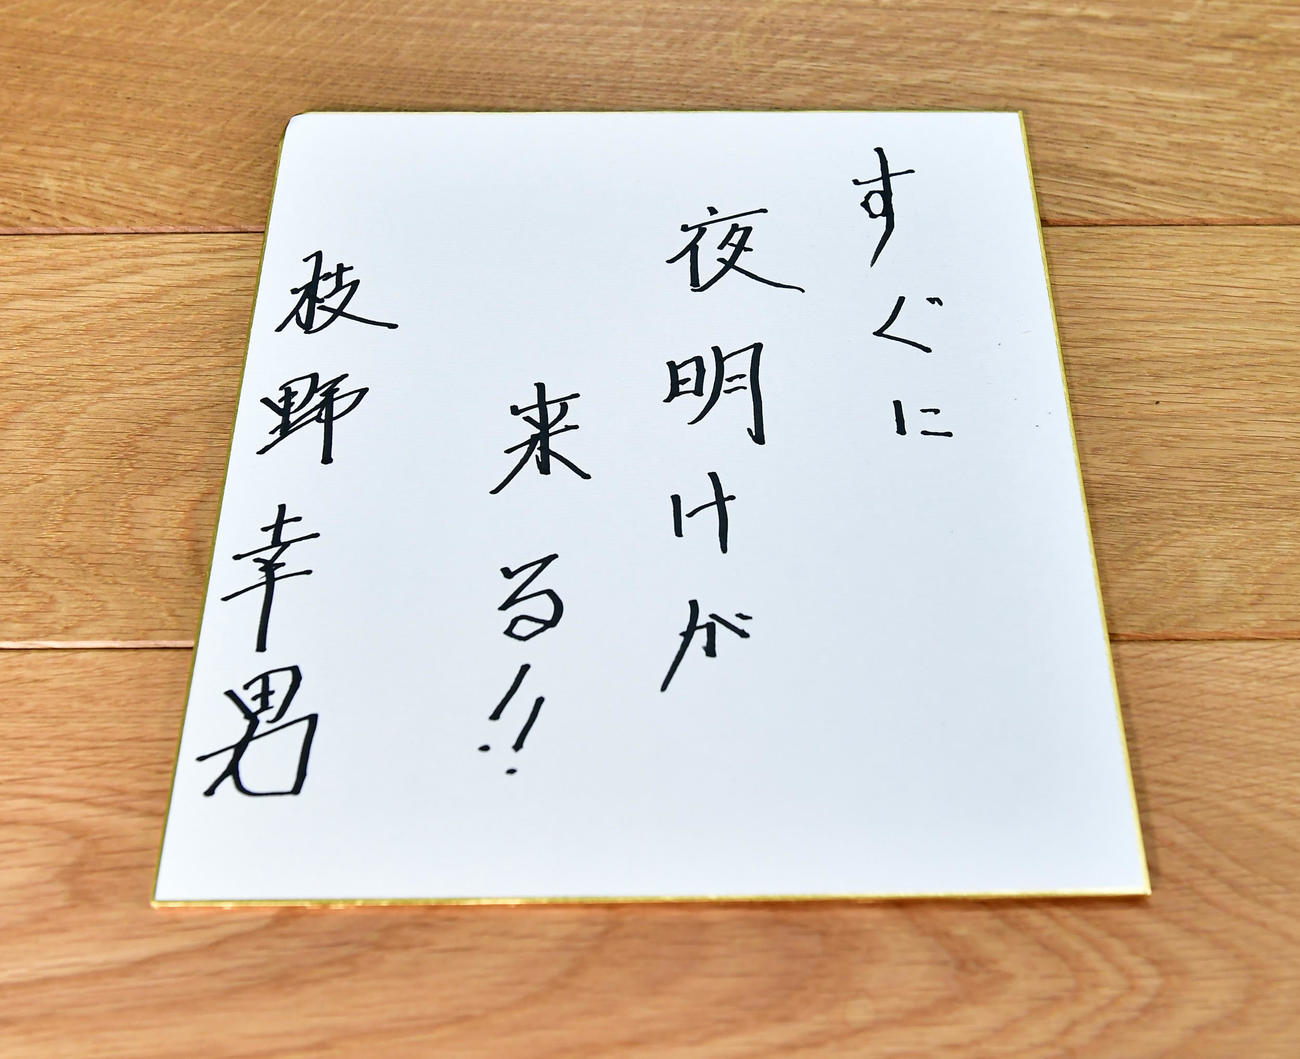 すぐに
夜明けが
来る!!
枝野幸男